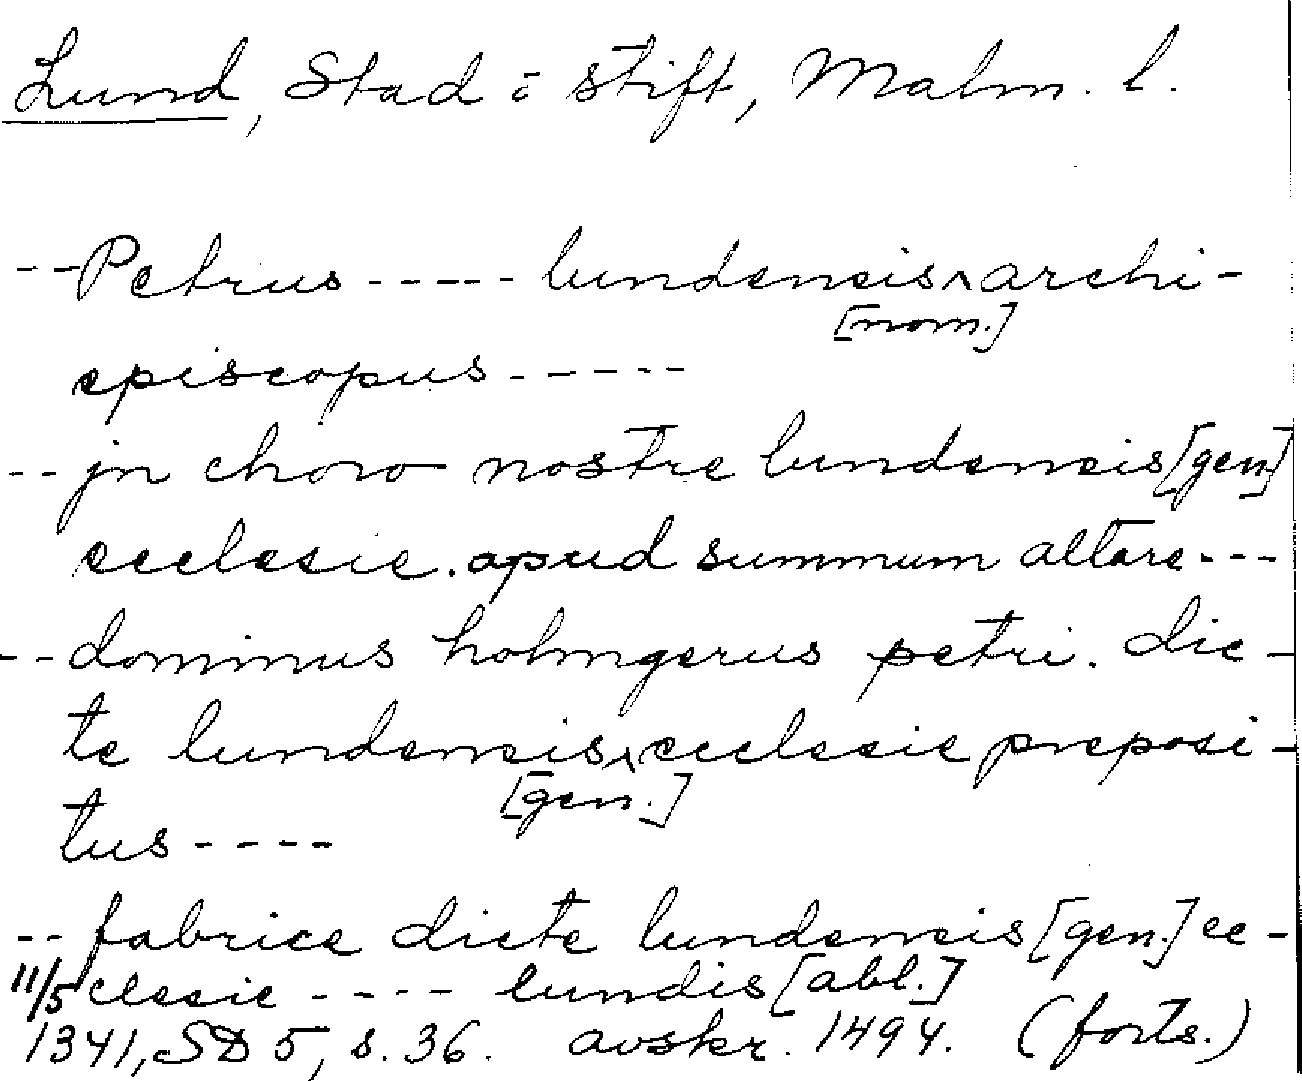 Lund, Stad o stift, Malm. l.
-- Petrus ----- lundensis ʌ archi-
[nom.]
episcopus -----
-- jn choro nostre lundensis [gen]
ecclesie. apud summum altare ---
-- dominus holmgerus petri. dic-
te lundensis ʌ ecclesie preposi-
[gen.]
tus ----
-- fabrice dicte lundensis [gen.] ec-
11/5 clesie ---- lundis [abl.]
1341, SD 5, s. 36. avskr. 1494. (forts.)